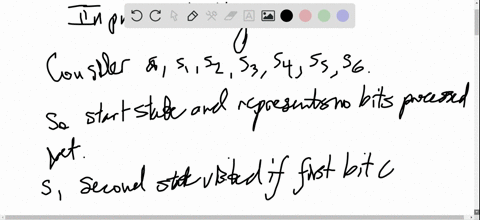 Inp
Consider s, s1, s2, s3, s4, s5, s6.
So start state and represents no bits processed
yet.
S, second state visited if first bit c